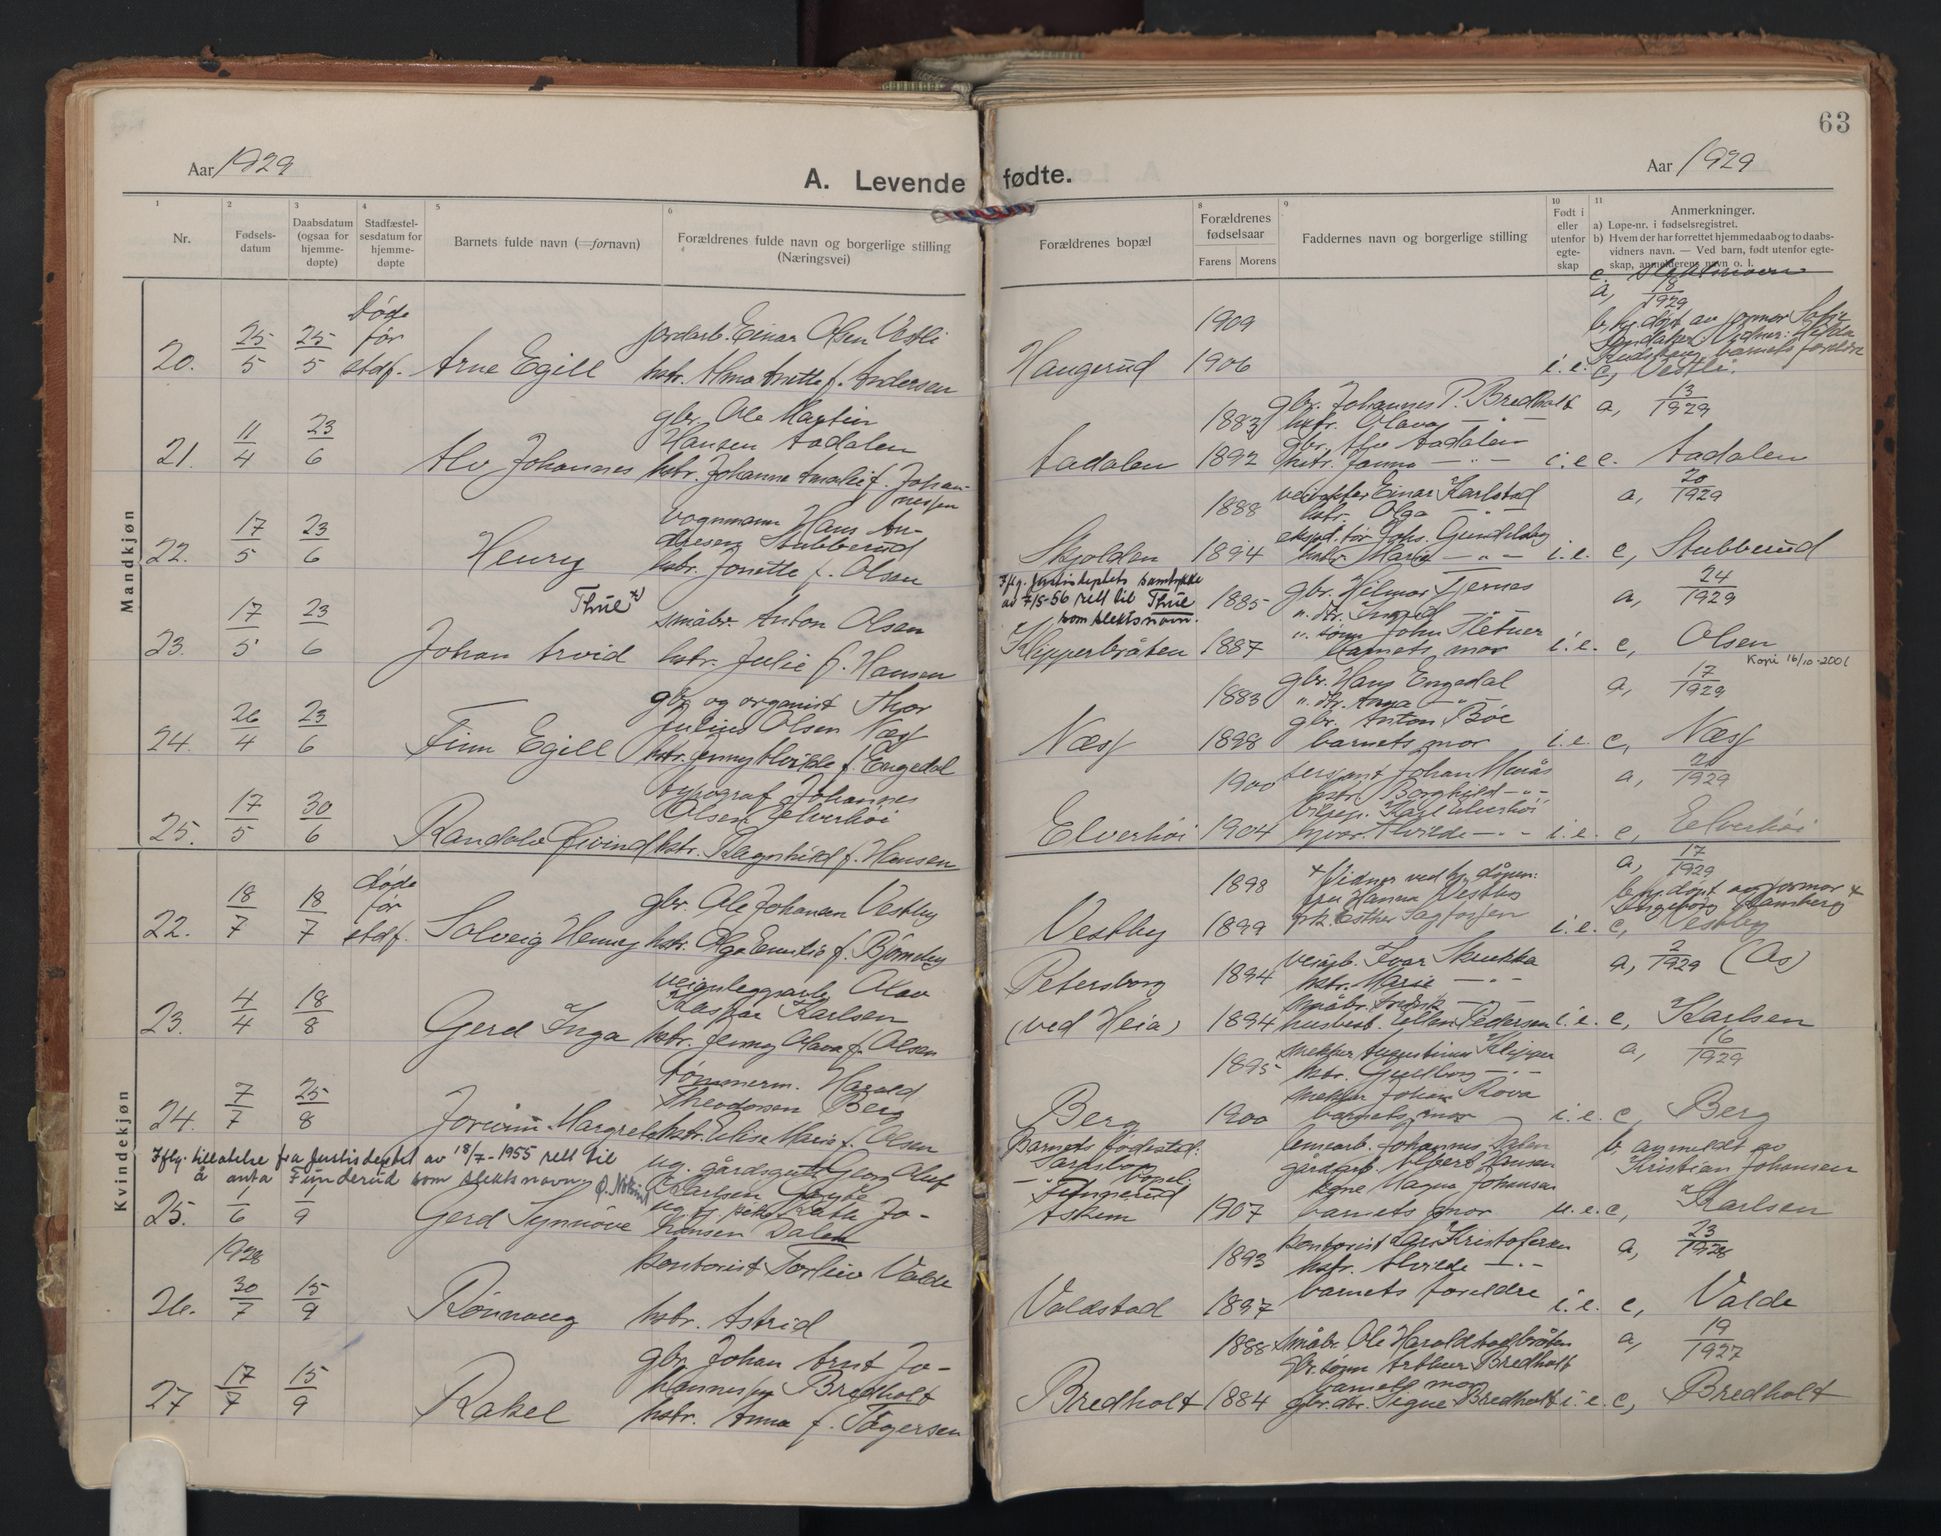 63
Aar 1929
A. Levende fødte.
Aar 1929
1 2 3 4 5 6 8 9 10 11
Nr.
Fødsels-
datum
Daabsdatum
(ogsaa for
hjemme-
døpte)
Stadfæstel-
sesdatum for
hjemme-
døpte
Barnets fulde navn (fornavn)
Forældrenes fulde navn og borgerlige stilling
(Næringsvei)
Forældrenes bopæl
Forældrenes
fødselsaar
Farens Morens
Faddernes navn og borgerlige stilling
Født i
eller
utenfor
egte-
skap
Anmerkninger.
a) Løpe-nr. i fødselsregistret.
b) Hvem der har forrettet hjemmedaab og to daabs-
vidners navn. — Ved barn, født utenfor egte-
skap, anmelderens navn o. l.
Mandkjøn
20. 25/5 25/5 døde før stdf. Arne Egill
jordarb. Einar Olsen Vestli
hstr. Alma Anette f. Andersen
Haugerud 1909 1906
i.e.
a, 18/1929
b. hj.døpt av jormor
barnets foreldre
c, Vestli.
21. 11/4 23/6 Alv Johannes
gbr. Ole Martin
Hansen Aadalen
hstr. Johanne Amalie f. Johan-
nessen
Aadalen 1883 1892
gbr. Johannes P. Bredholt
hstr. Olava — " —
gbr. Alv Aadalen
hstr. Janna — " —
i.e. c. Aadalen
a, 13/1929
22. 17/5 23/6 Henry
vognmann Hans An-
dresen Stubberud
hstr. Jonette f. Olsen
Skjolden 1888 1894
Einar Karlstad
hstr. Olga — " —
hstr. Marie — " —
i.e. c, Stubberud
a, 20/1929
23. 17/5 23/6 Johan Arvid Thül *)
småbr. Anton Olsen
hstr. Julie f. Hansen
Iflg. Justisdeptets samtykke
av 7/5-56 rett til Thül
som slektsnavn.
Klipperbråten 1885 1887
gbr. Hilmar Gjernes
" dtr. Ingrid — " —
" sønn John Fletner
barnets mor
i.e. c, Olsen
a, 24/1929
Kopi 16/10-2001
24. 26/4 23/6 Finn Egill
gbr og organist Thor
Julius Olsen Næss
hstr. Jenny Alvilde f. Engedal
Næss 1883 1898
gbr. Hans Engedal
" dtr. Anna — " —
gbr. Anton Bøe
barnets mor
i.e. c, Næss
a, 17/1929
25. 17/5 30/6 Randolv Øivind
typograf Johannes
Olsen Elverhöi
hstr. Ragnhild f. Hansen
Elverhöi 1900 1904
sersjant Johan Menås
hstr. Borghild — " —
Karl Elverhöi
Alvilde — " —
i.e. c, Elverhöi
a, 21/1929
Kvindekjøn
22. 18/7 18/7 døde før stdf. Solveig Henny
gbr. Ole Johanan Vestby
hstr. Olga Emilie f. Bjørneby
Vestby 1898 1899
+ Vidner ved hj.dåpen:
fru Hanna Vestby
frk. Esther Sagfossen
i.e. c, Vestby
a, 17/1929
b, hj.døpt av jormor +
Ingeborg Hamberg
23. 4/4 18/8 Gerd Inga
veianleggsarb. Olav
Kaspar Karlsen
hstr. Jenny Olava f. Olsen
Petersborg
(ved Heia) 1894 1894
Ivar Skukka
hstr. Marie — " —
småbr. Fredrik — " —
husbest. Ellen Pedersen
i.e. c, Karlsen
a, 2/1929 (Ås)
24. 7/7 25/8 Jorunn Margrete
tømmerm. Harald
Theodorsen Berg
hstr. Elise Marie f. Olsen
Berg 1895 1900
snekker Augustinus Klipper
hstr. Gudborg — " —
snekker Johan Rova
barnets mor
i.e. c, Berg
a, 16/1929
Iflg. tillatelse fra Justisdeptet av 18/7-1955 rett til
å anta Funderud som slektsnavn
25. 1/6 1/9 Gerd Synnöve
ug. gårdsgutt Georg Oluf
Karlsen
hansen Dalen
Barnets fødested:
Sarpsborg
— " — bopel:
Fingerud
Askim 1907
lensarb. Johannes Dalen
gårdarb. Albert Hansen
Magna Johansen
barnets mor
u.e. c, Karlsen
b, anmeldt av
Kristian Johansen
26. 1928 30/7 15/9 Rönnaug
kontorist Torleiv Valde
hstr. Astrid
Valdstad 1893 1897
kontorist Lars Kristofersen
hstr. Alvilde — " —
barnets foreldre
i.e. c, Valde
a, 23/1928
27 17/7 15/9 Rakel
gbr. Johan Arnt Jo-
hannessen Bredholt
hstr. Anna f. Tågersen
Bredholt 1888 1884
småbr. Ole Haraldstadbråten
gbr. sønn Arthur Bredholt
barnets mor
gbr. dtr. Signe Bredholt
i.e. c, Bredholt
a, 19/1927